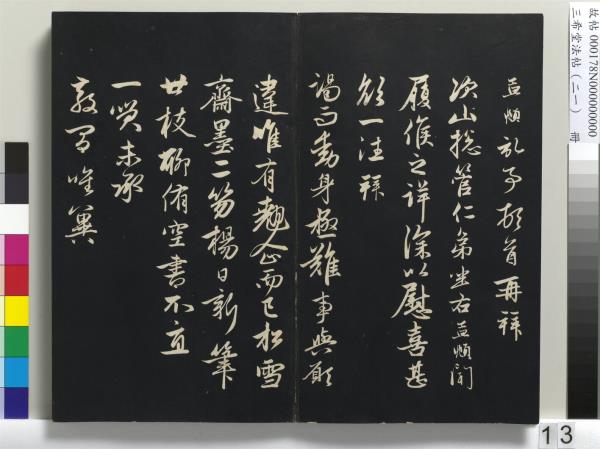 孟頫記事頓首再拜
次山總管仁弟坐右孟頫聞
履候之詳深以慰喜甚
欲一往拜
謁而動身極難事與願
違唯有翹企而已松雪
齋墨二笏楊日新筆
廿枝聊侑空書不宜
一笑未承
教間唯冀
故帖000178N000000000
三希堂法帖(二一) 冊
13